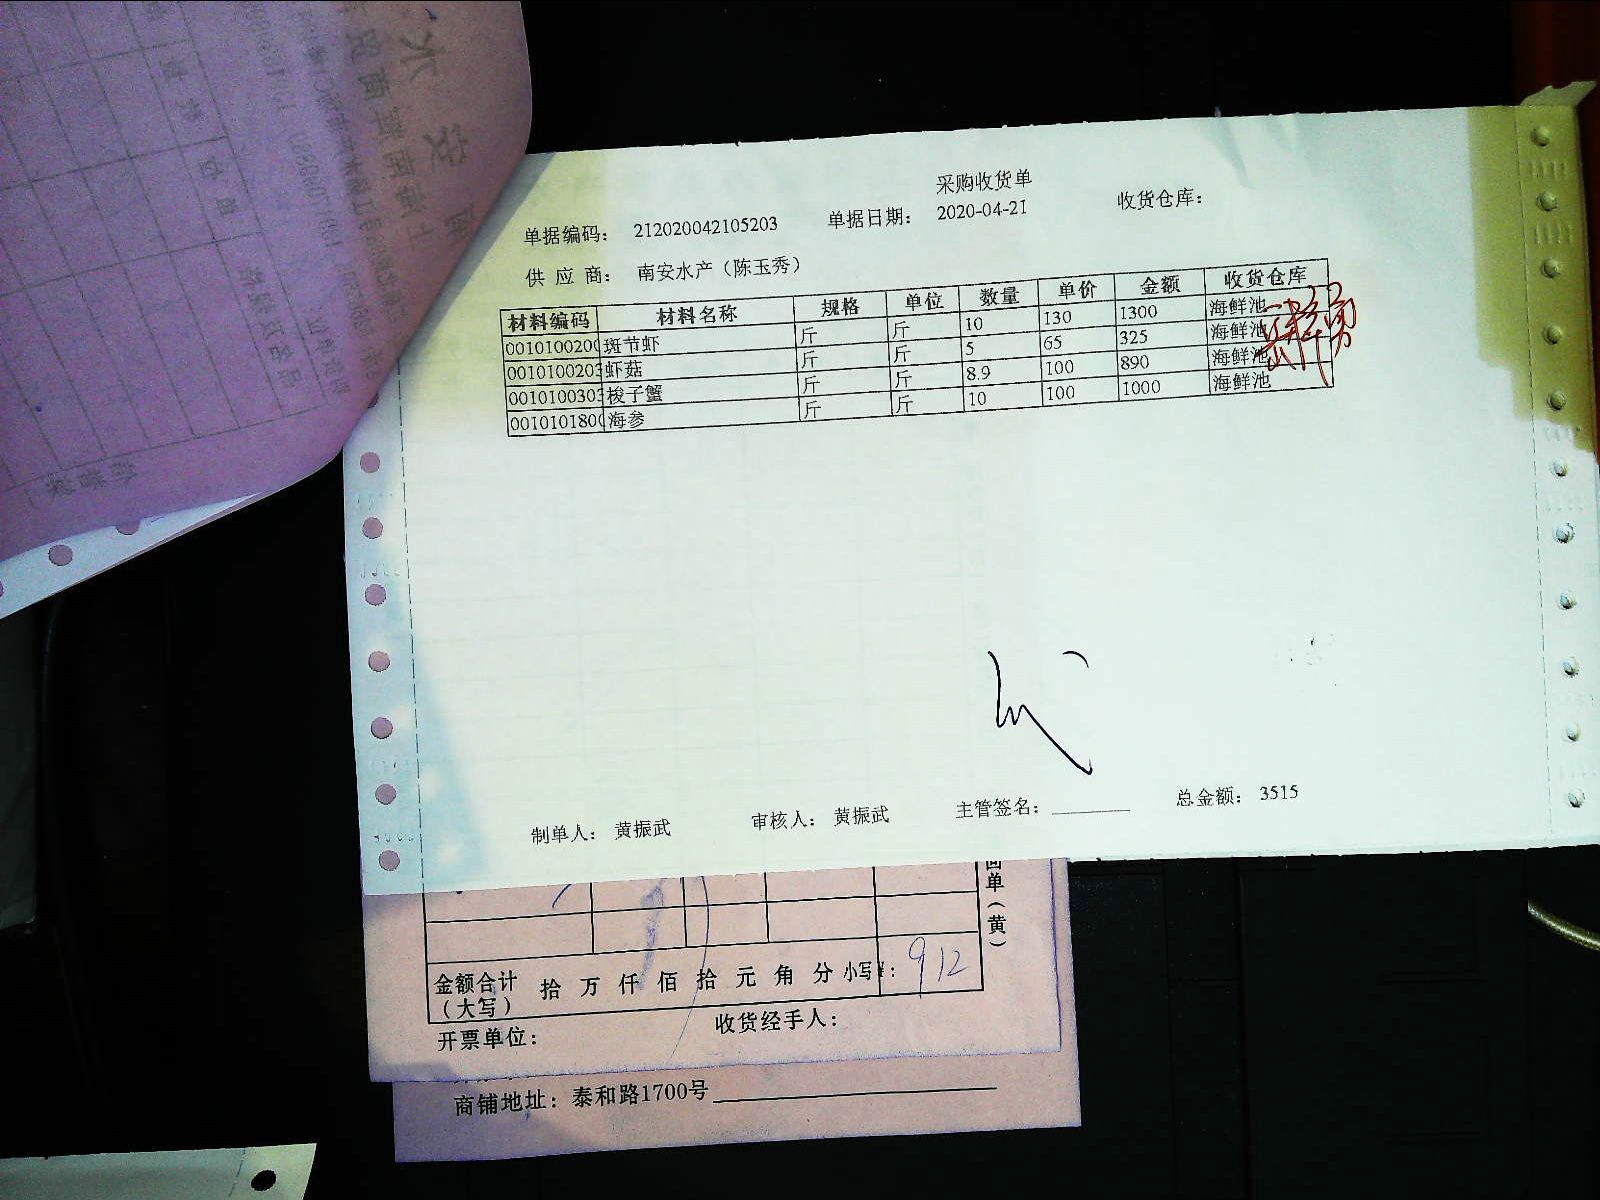 采购收货单
单据编码: 212020042105203 单据日期: 2020-04-21 收货仓库:
供应商: 南安水产（陈玉秀）
材料编码 材料名称 规格 单位 数量 单价 金额 收货仓库
001010020 斑节虾 斤 斤 10 130 1300 海鲜池
0010100203 虾菇 斤 斤 5 65 325 海鲜池
0010100303 梭子蟹 斤 斤 8.9 100 890 海鲜池
001010180 海参 斤 斤 10 100 1000 海鲜池
制单人: 黄振武 审核人: 黄振武 主管签名: 总金额: 3515
回单（黄）
金额合计（大写） 拾 万 仟 佰 拾 元 角 分 小写¥: 912
开票单位: 收货经手人:
商铺地址: 泰和路1700号